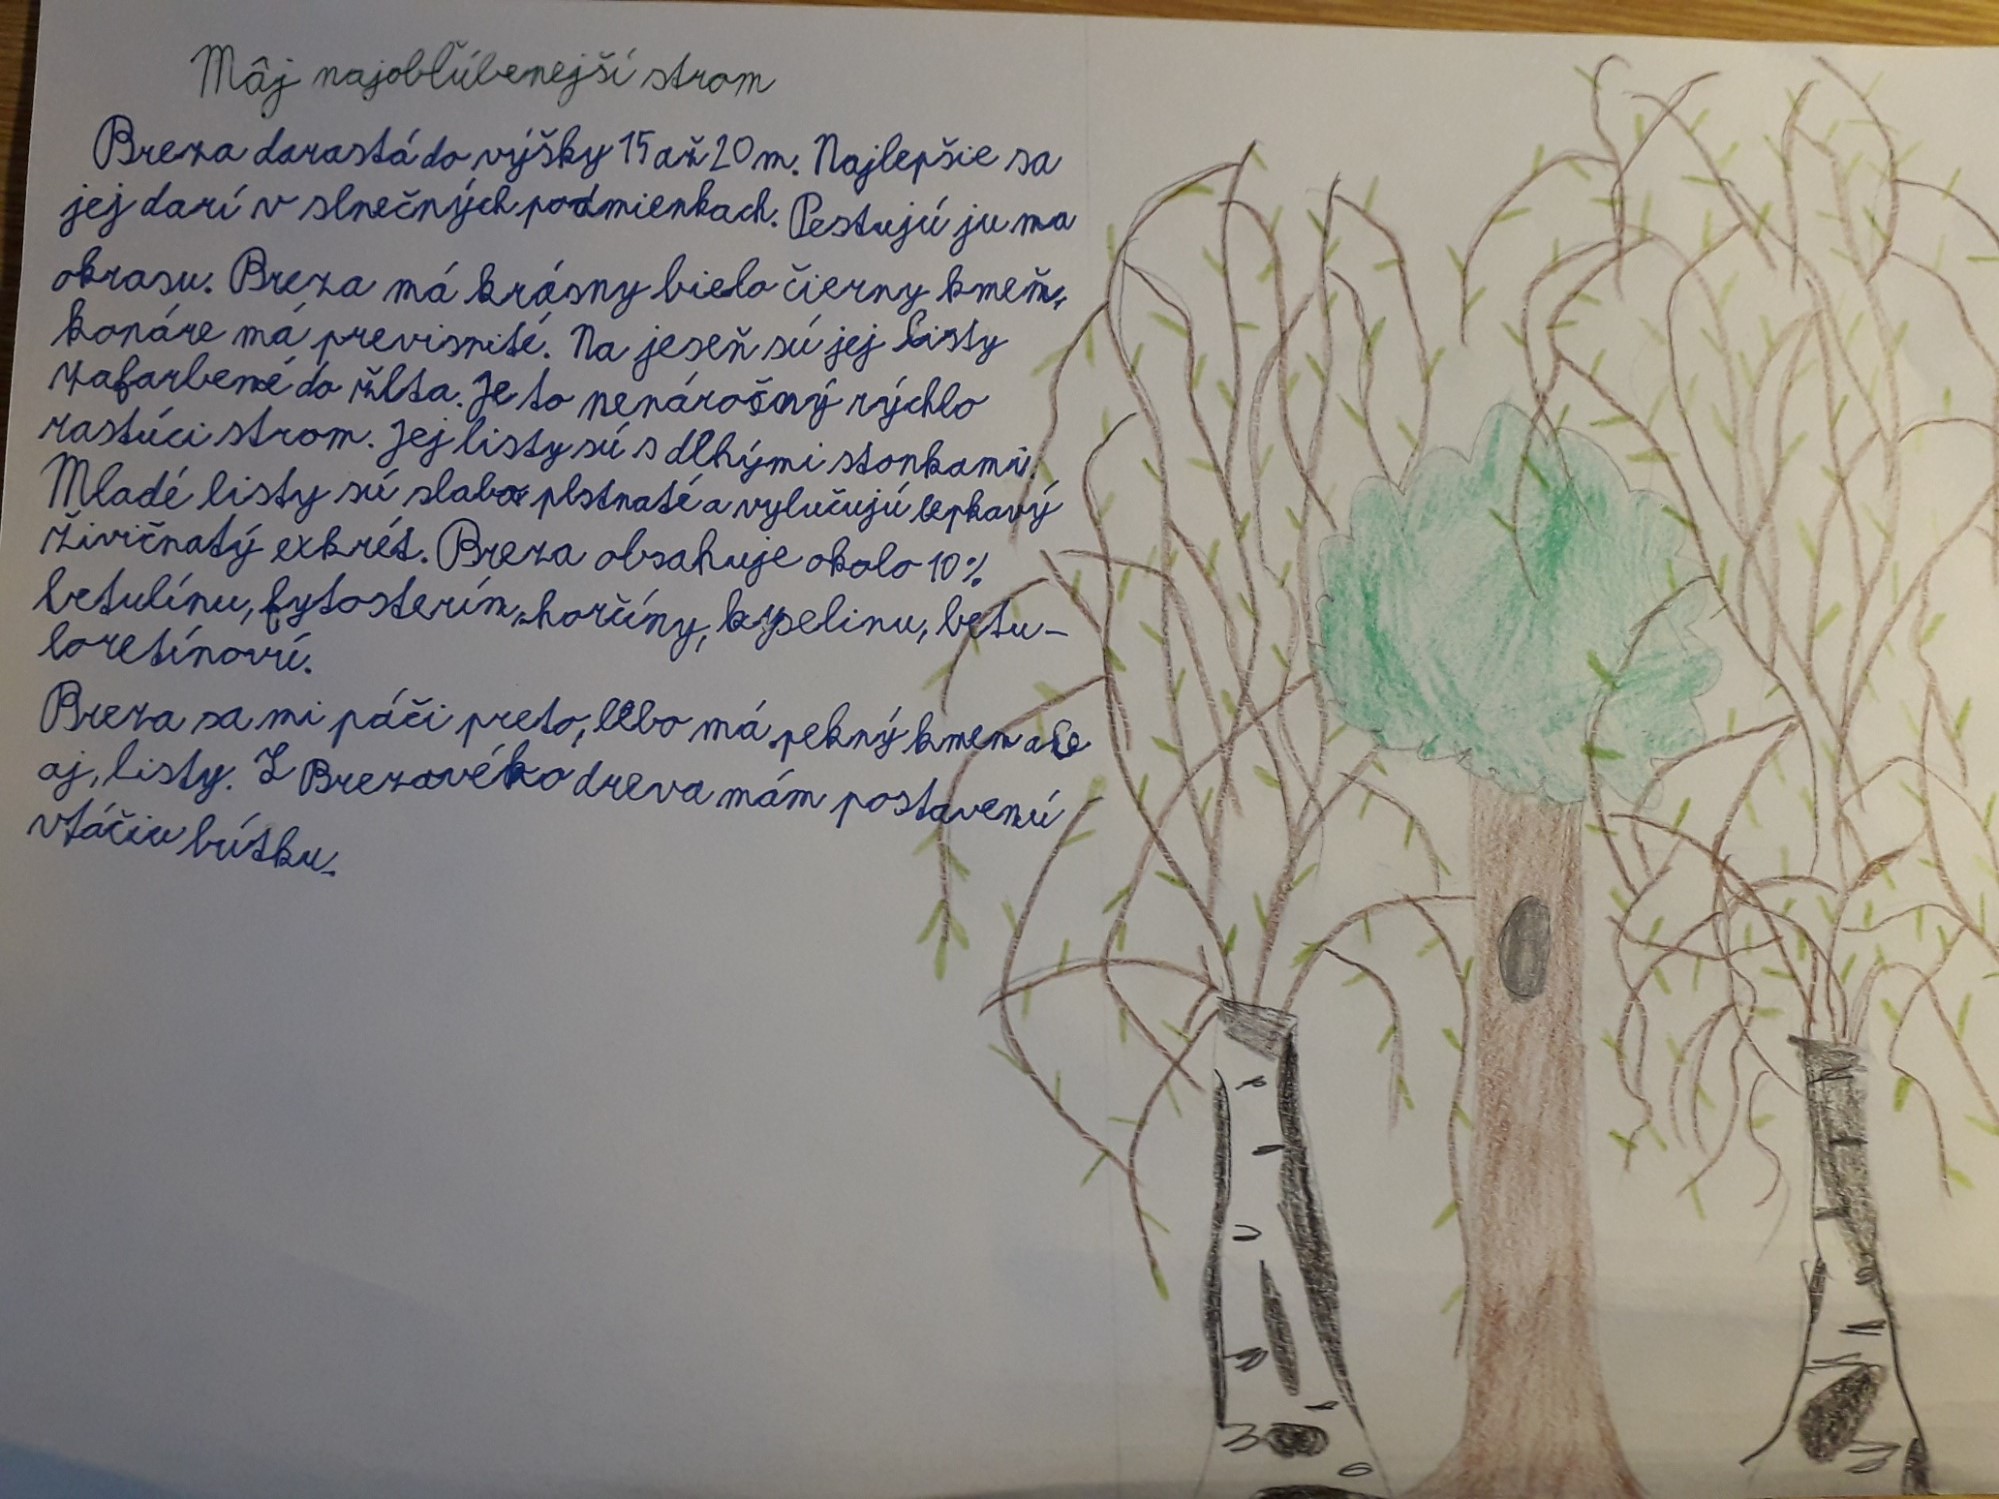 Môj najobľúbenejší strom
Breza darastá do výšky 15 až 20 m. Najlepšie sa
jej darí v slnečných podmienkach. Pestujú ju na
okrasu. Breza má krásny bielo čierny kmeň,
konáre má previsnité. Na jeseň sú jej listy
zafarbené do žlta. Je to nenáročný rýchlo
rastúci strom. Jej listy sú s dlhými stonkami.
Mladé listy sú slabo plstnaté a vylučujú lepkavý
živičnatý exkrét. Breza obsahuje okolo 10%
betulínu, fytosterín, horčíny, kypelinu, betu-
loretínoví.
Breza sa mi páči preto, lebo má pekný kmen ale
aj, listy. Z Brezového dreva mám postavenú
vtáčiu bútku.